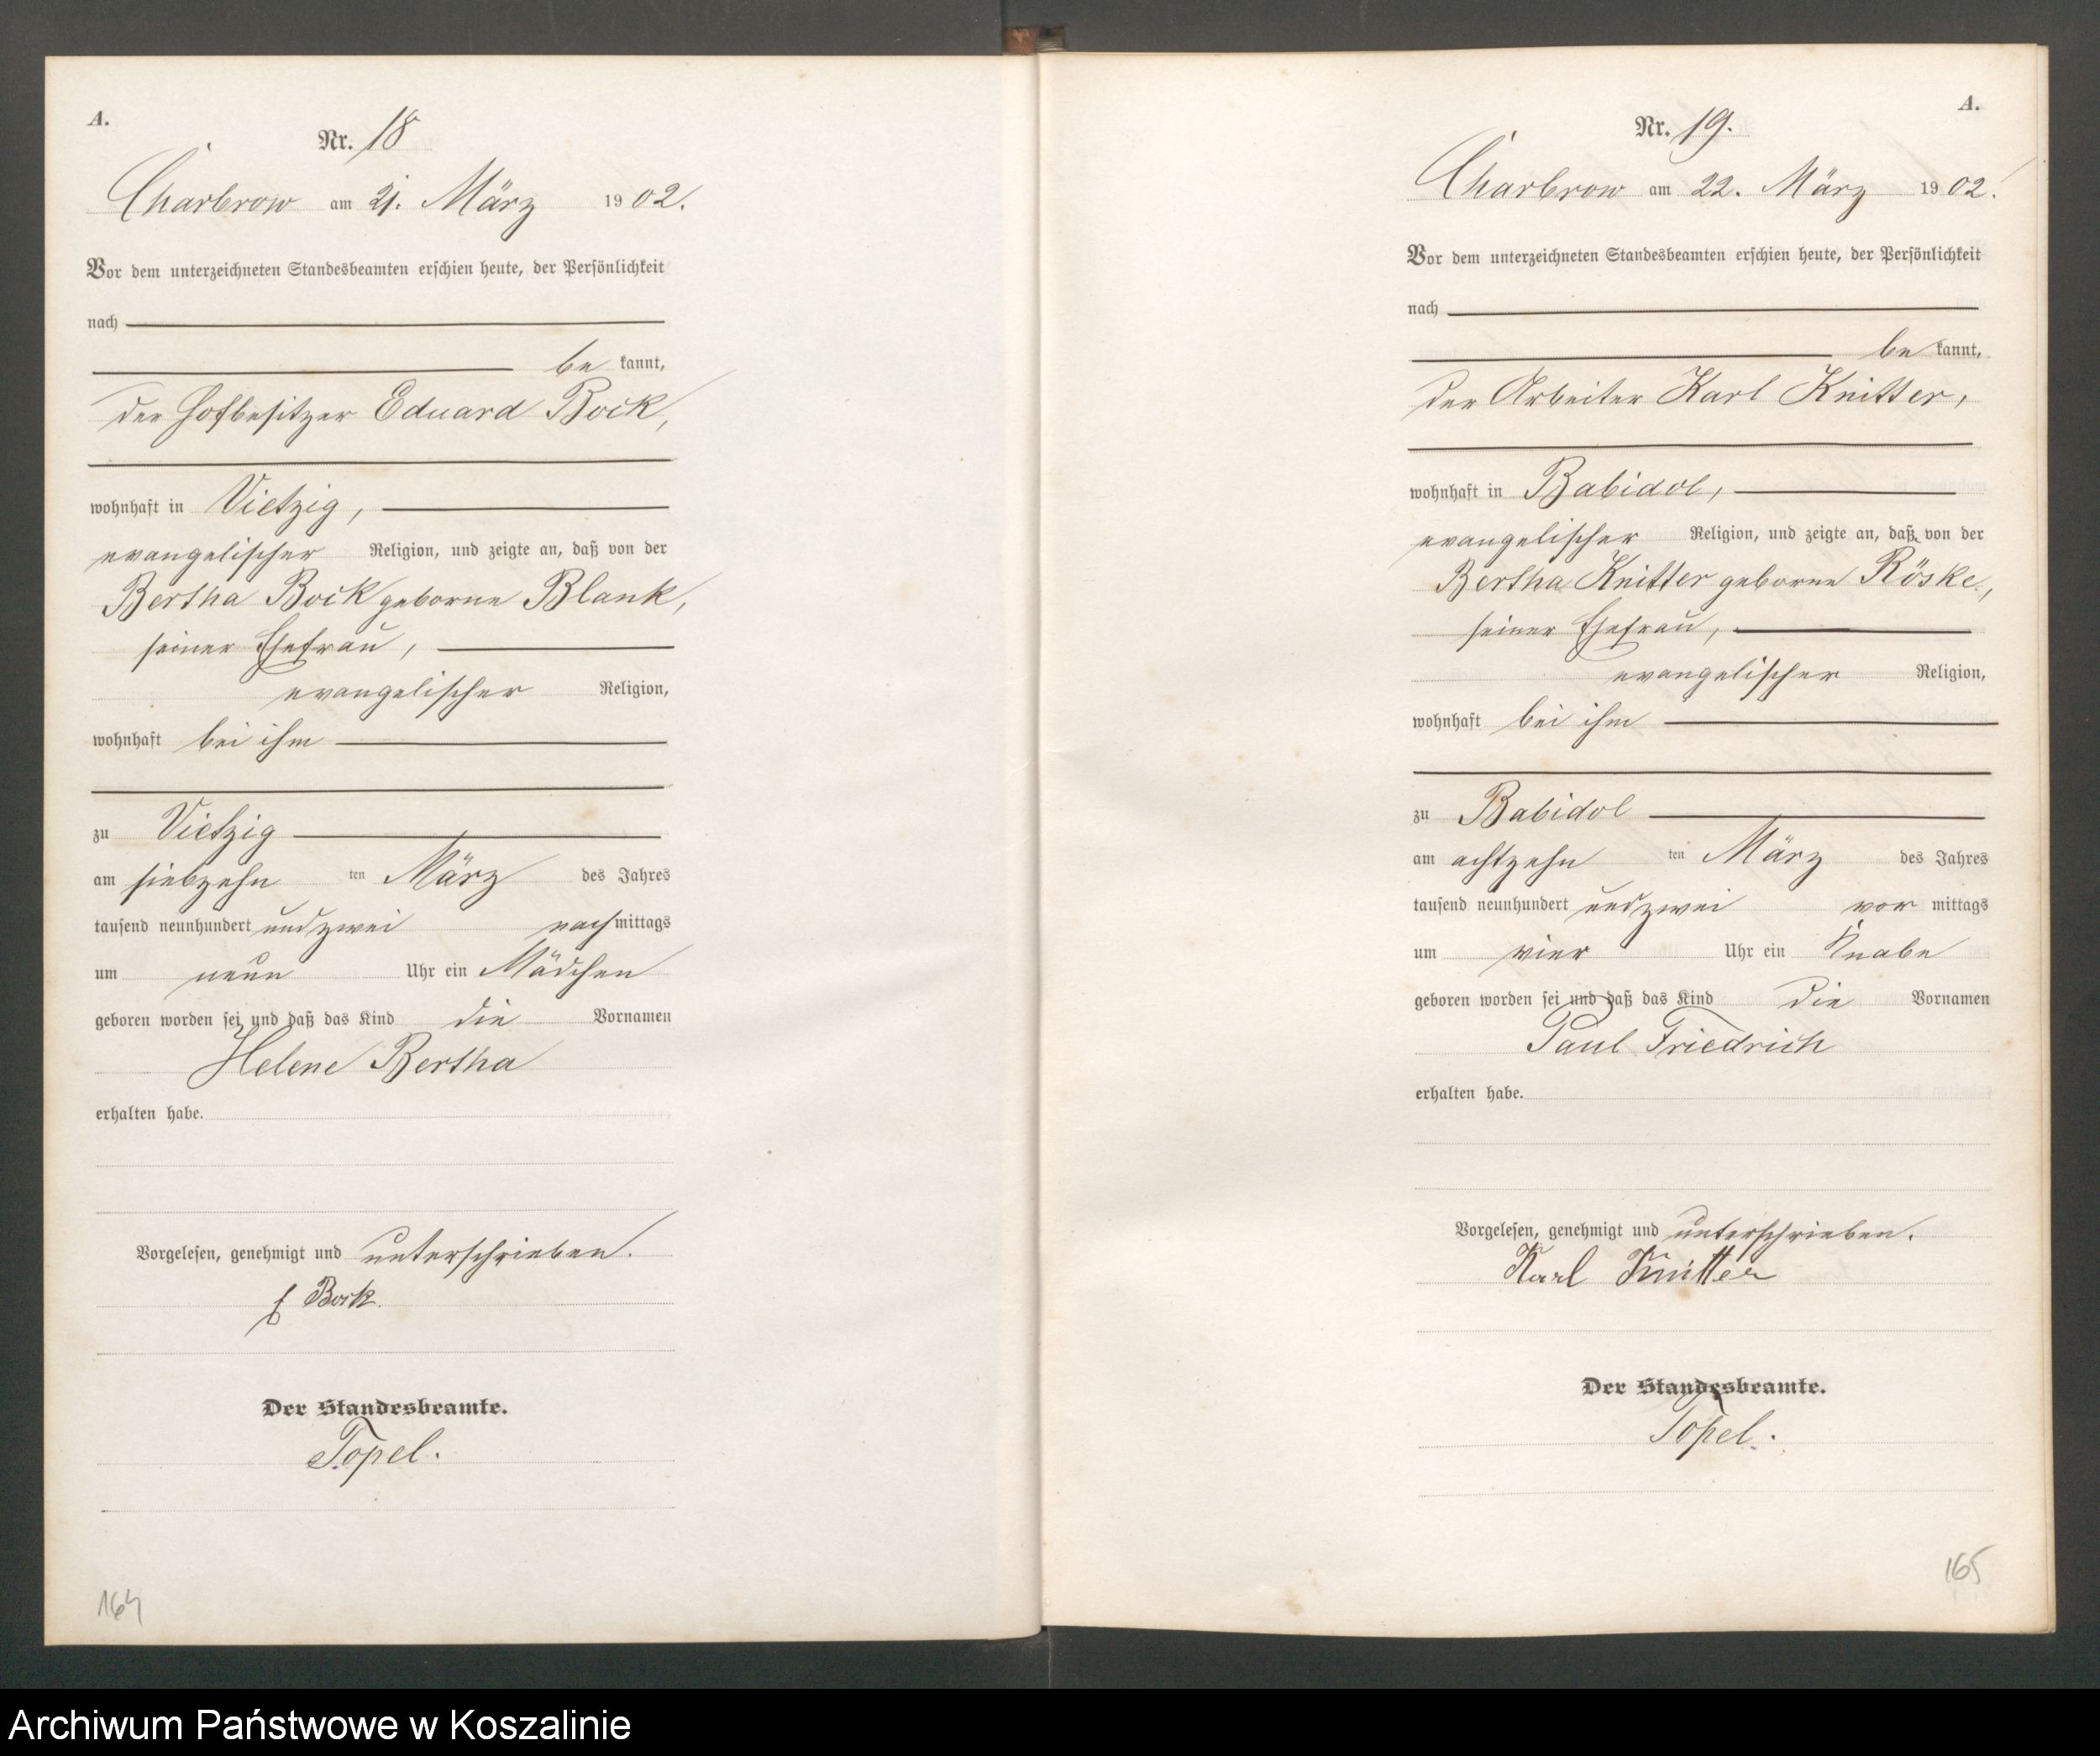 A.
Nr. 18
Charbrow am 21. März 1902.
Vor dem unterzeichneten Standesbeamten erschien heute, der Persönlichkeit
nach
be kannt,
der Hofbesitzer Eduard Bock,
wohnhaft in Vietzig,
evangelischer Religion, und zeigte an, daß von der
Bertha Bock geborne Blank,
seiner Ehefrau,
evangelischer Religion,
wohnhaft bei ihm
zu Vietzig
am siebzehn ten März des Jahres
tausend neunhundert und zwei nach mittags
um neun Uhr ein Mädchen
geboren worden sei und daß das Kind die Vornamen
Helene Bertha
erhalten habe.
Vorgelesen, genehmigt und unterschrieben.
E Bock.
Der Standesbeamte.
Topel.
164
A.
Nr. 19.
Charbrow am 22. März 1902.
Vor dem unterzeichneten Standesbeamten erschien heute, der Persönlichkeit
nach
be kannt,
der Arbeiter Karl Knitter,
wohnhaft in Babidol,
evangelischer Religion, und zeigte an, daß von der
Bertha Knitter geborne Röske,
seiner Ehefrau,
evangelischer Religion,
wohnhaft bei ihm
zu Babidol
am achtzehn ten März des Jahres
tausend neunhundert und zwei vor mittags
um vier Uhr ein Knabe
geboren worden sei und daß das Kind die Vornamen
Paul Friedrich
erhalten habe.
Vorgelesen, genehmigt und unterschrieben.
Karl Knitter
Der Standesbeamte.
Topel.
165
Archiwum Państwowe w Koszalinie